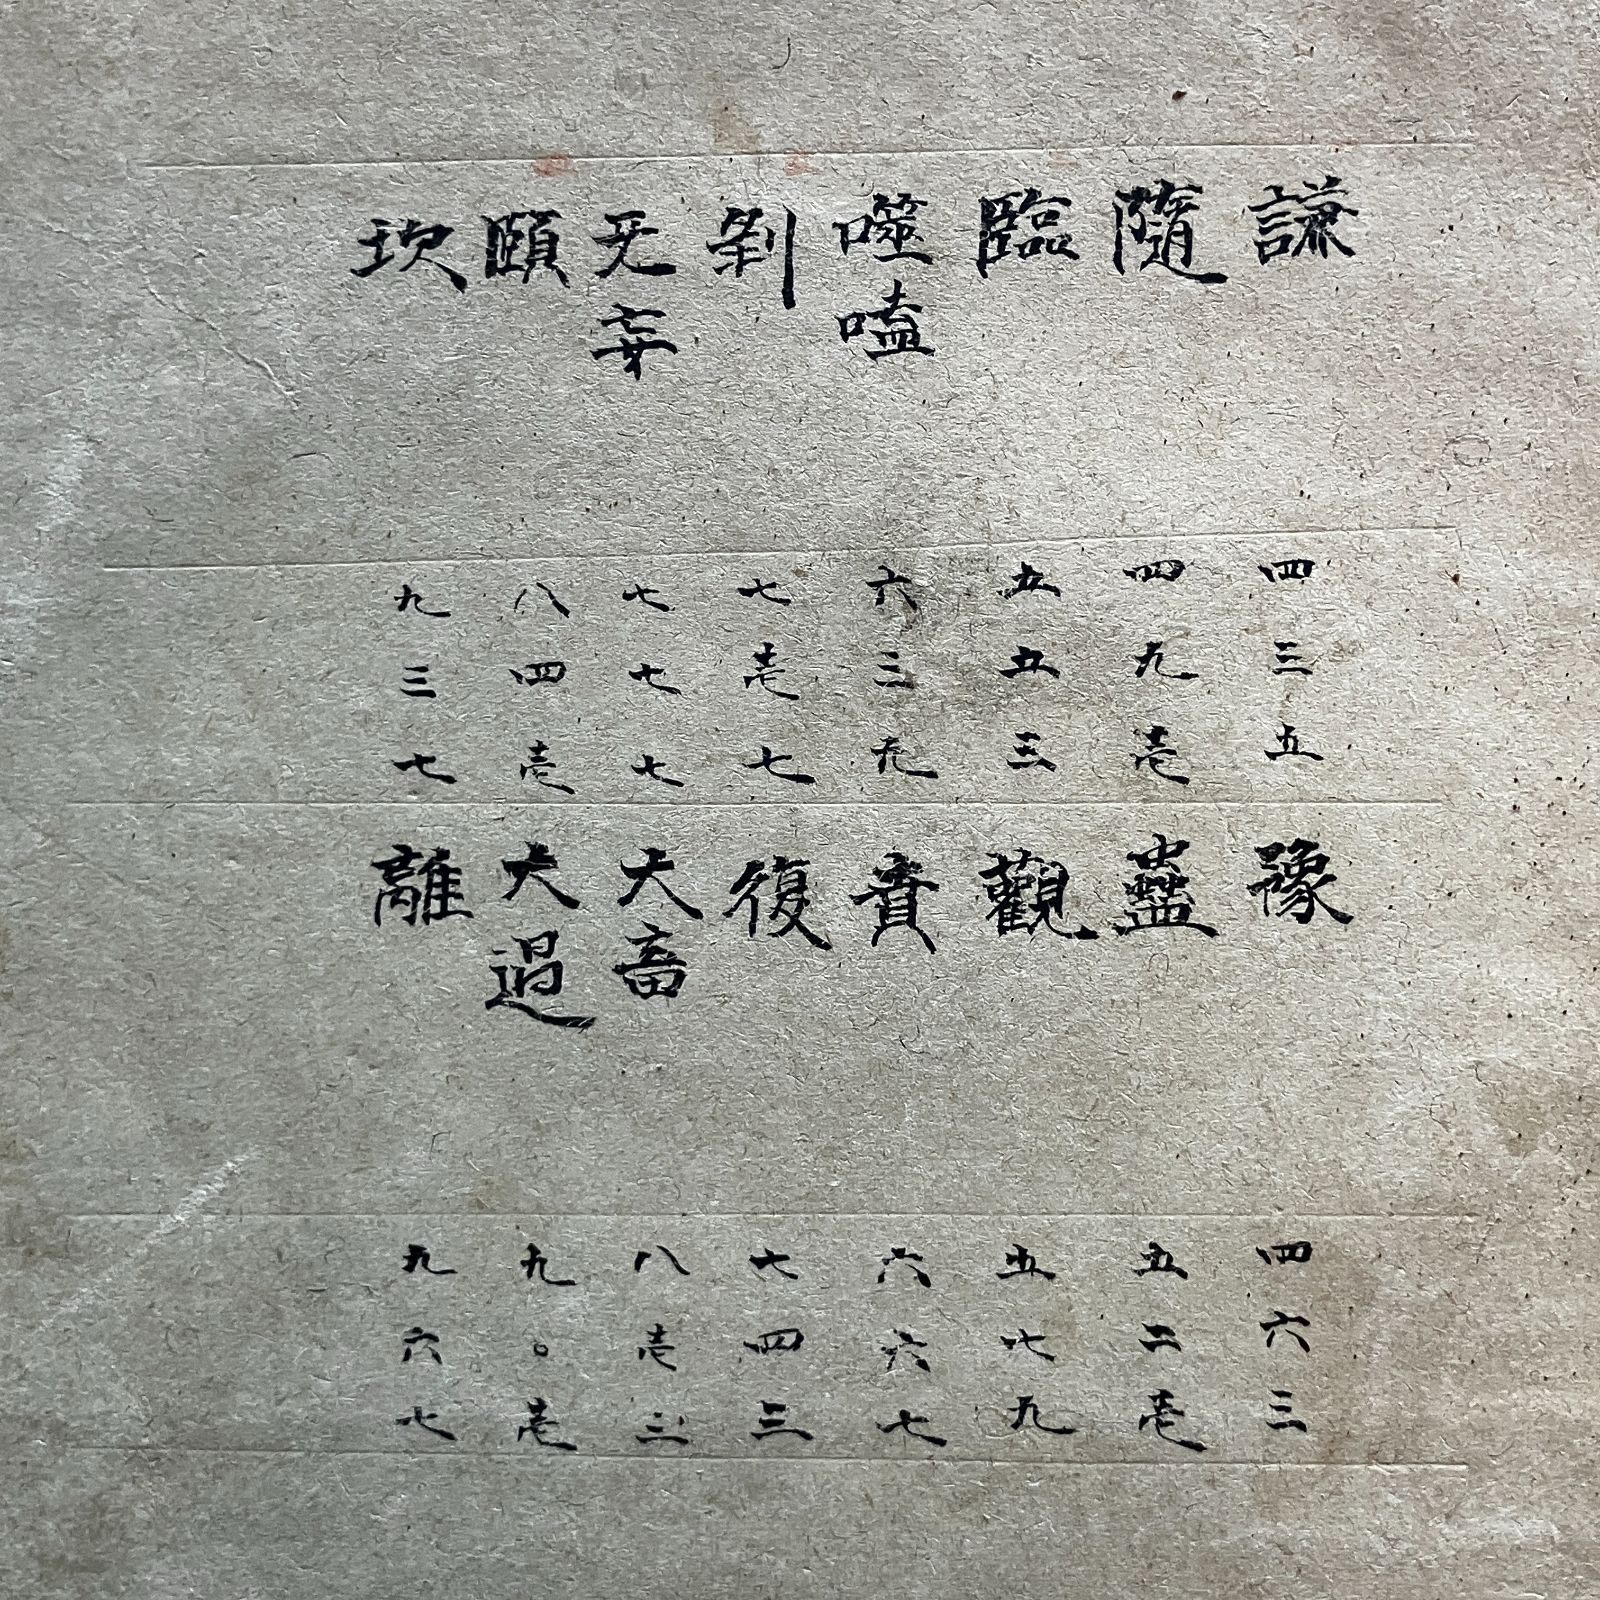 謙 四三五
豫 四六三
隨 四九壱
蠱 五二壱
臨 五五三
觀 五七九
噬嗑 六三九
賁 六六七
剝 七壱七
復 七四三
无妄 七七七
大畜 八壱三
頤 八四壱
大過 九〇壱
坎 九三七
離 九六七